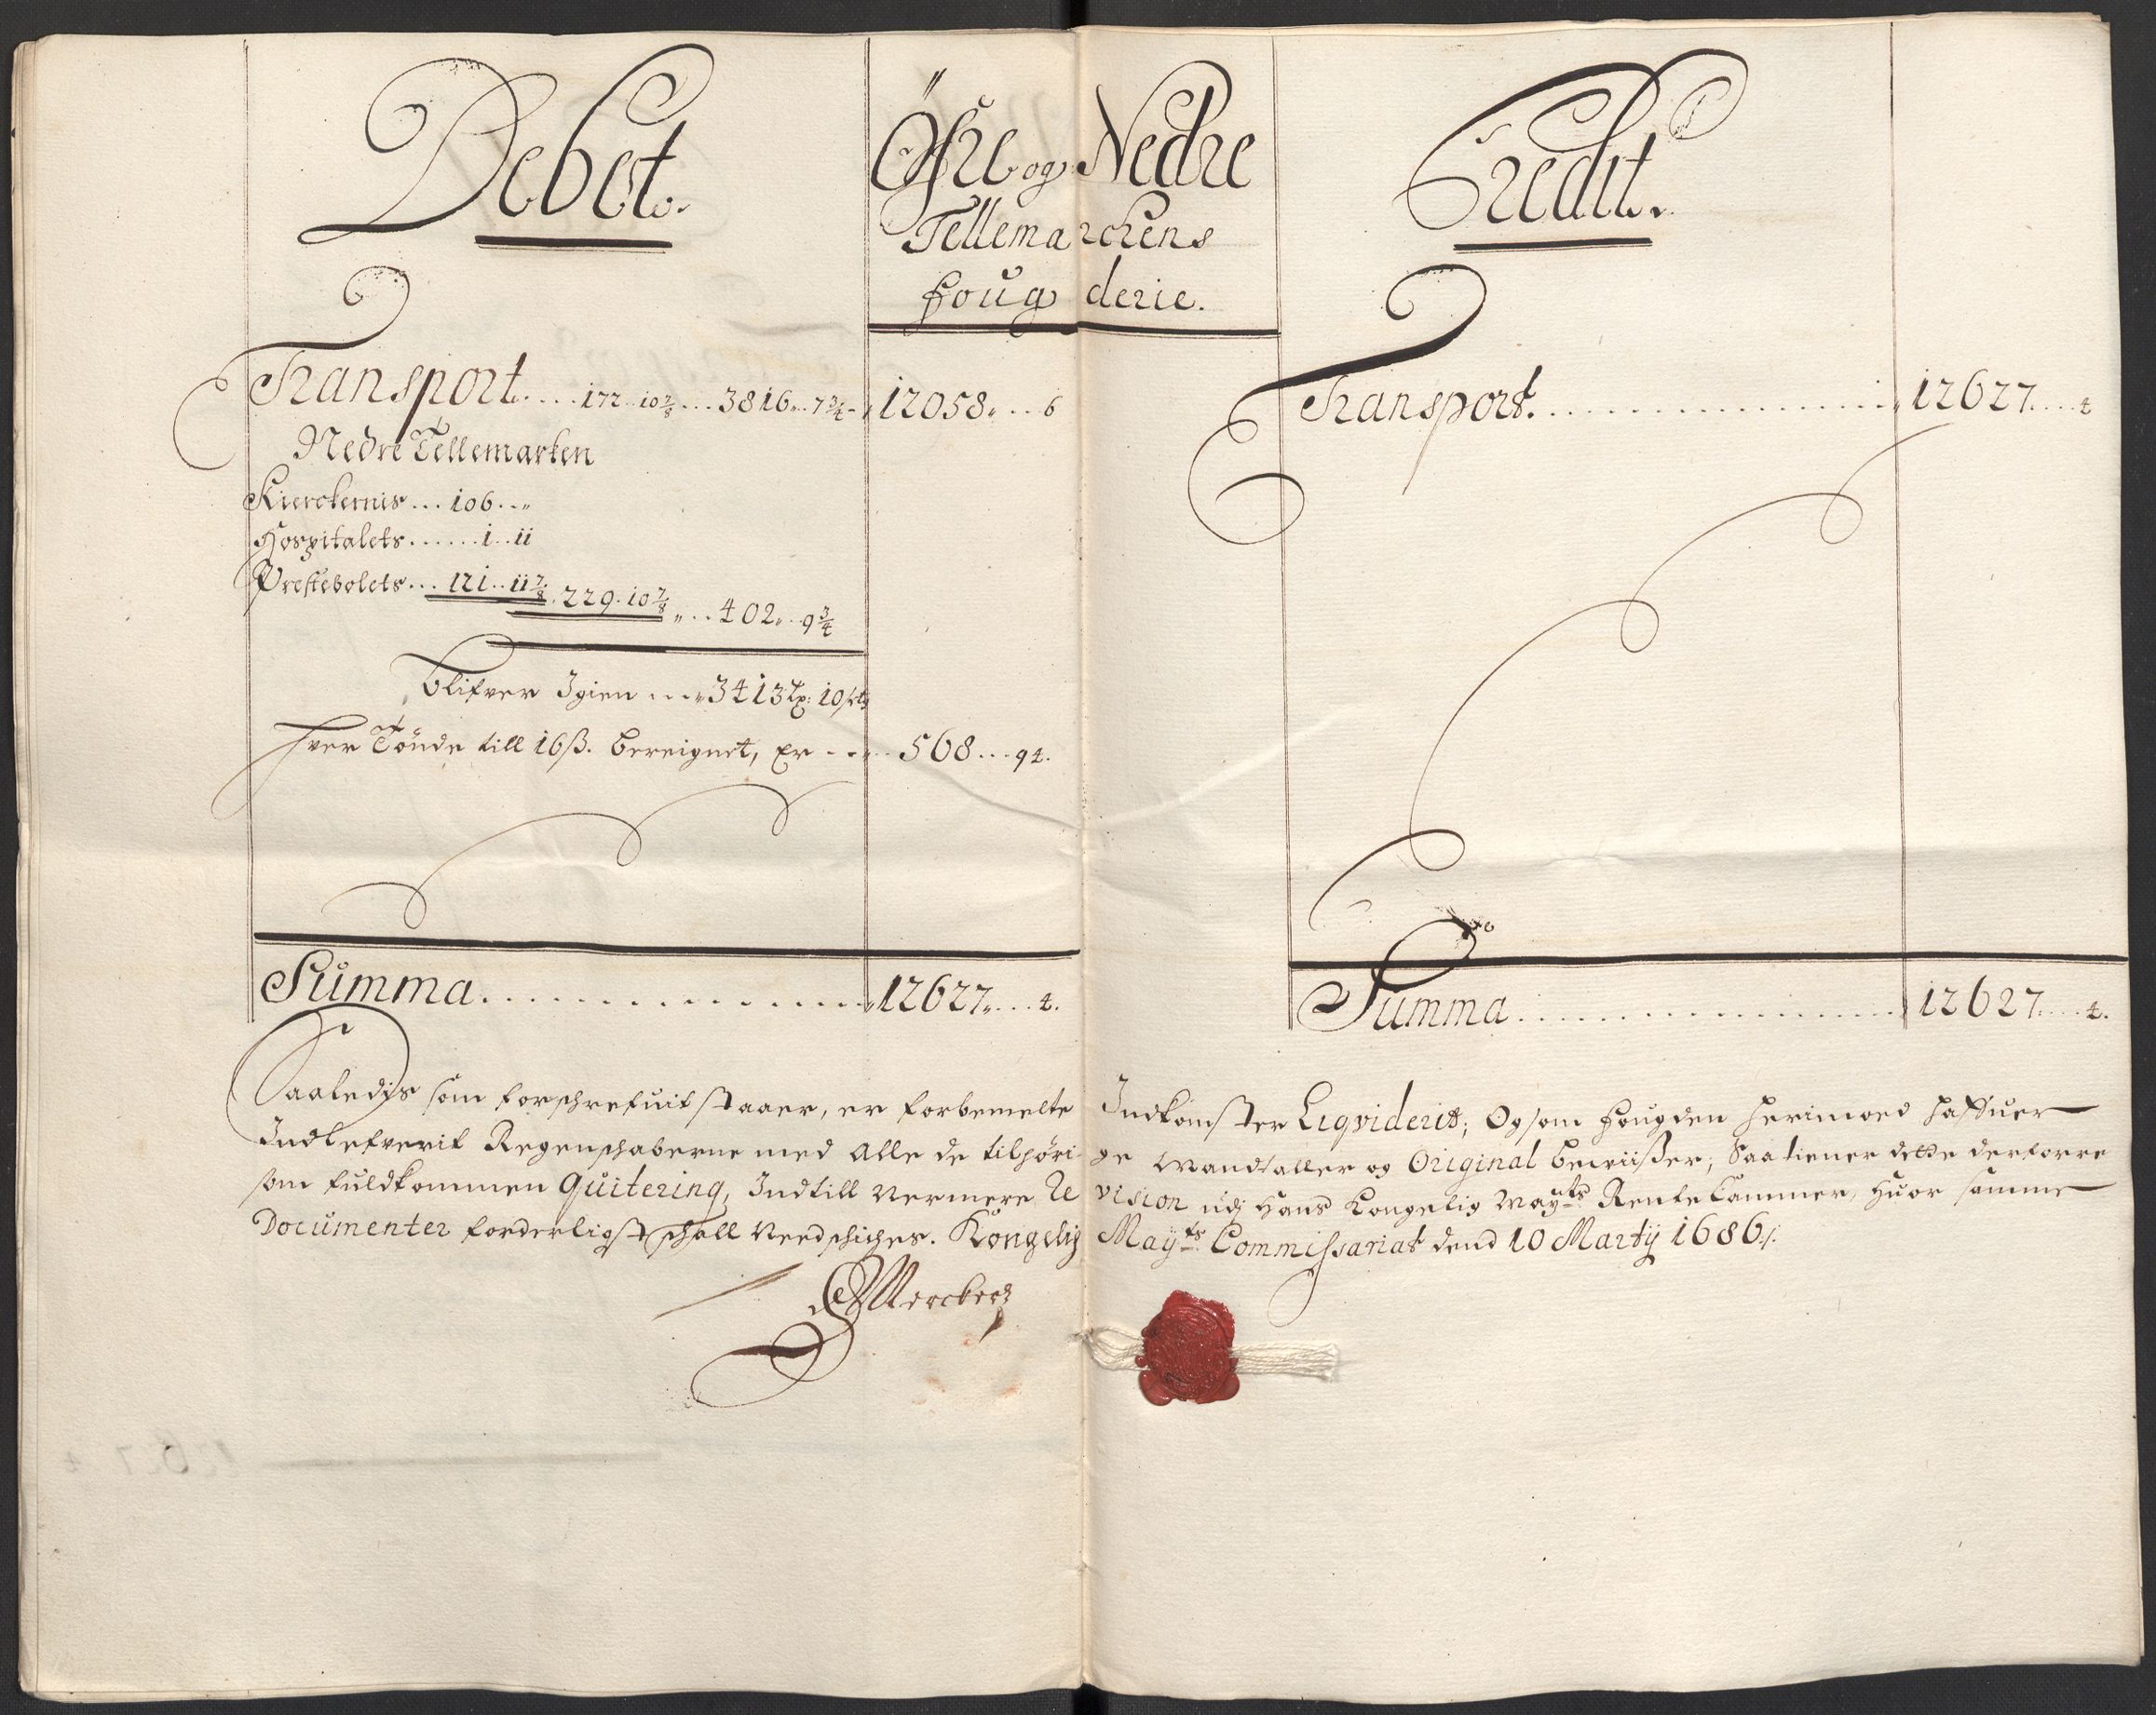 Debet.
Öfre og Nedre
Tellemarckens
fougderie.
Credit.
Transport....172..10 7/8...3816..7 3/4..12058....6
Nedre Tellemarken
Kierckernis...106..„
Hospitalets......1..11
Prestebolets...121..11 7/8.229.10 7/8„...402„..9 3/4
Blifver Igien....3413 Tø: 10
hver Tönde till 16 ß. bereignet, Er - - - 568...94.
Summa................12627....4.
Transport..................12627....4
Summa..................12627....4.
Saaledis som forschrefuit staaer, er forbemelte Indkomster Liqviderit; Og som fougden herimoed hafuer
Indlefverit Regenschaberne med Alle de tilhörige Mandtaller og Original beviißer; Saa tiener dette derforre
som fuldkommen Qviitering, Indtill Vermere Revision udj Hans Kongelig May:ts Rente Cammer, huor samme
Documenter forderligst schall Nerdschiches. Kongelig May:ts Commissariat dend 10 Martij 1686/:
Merckers